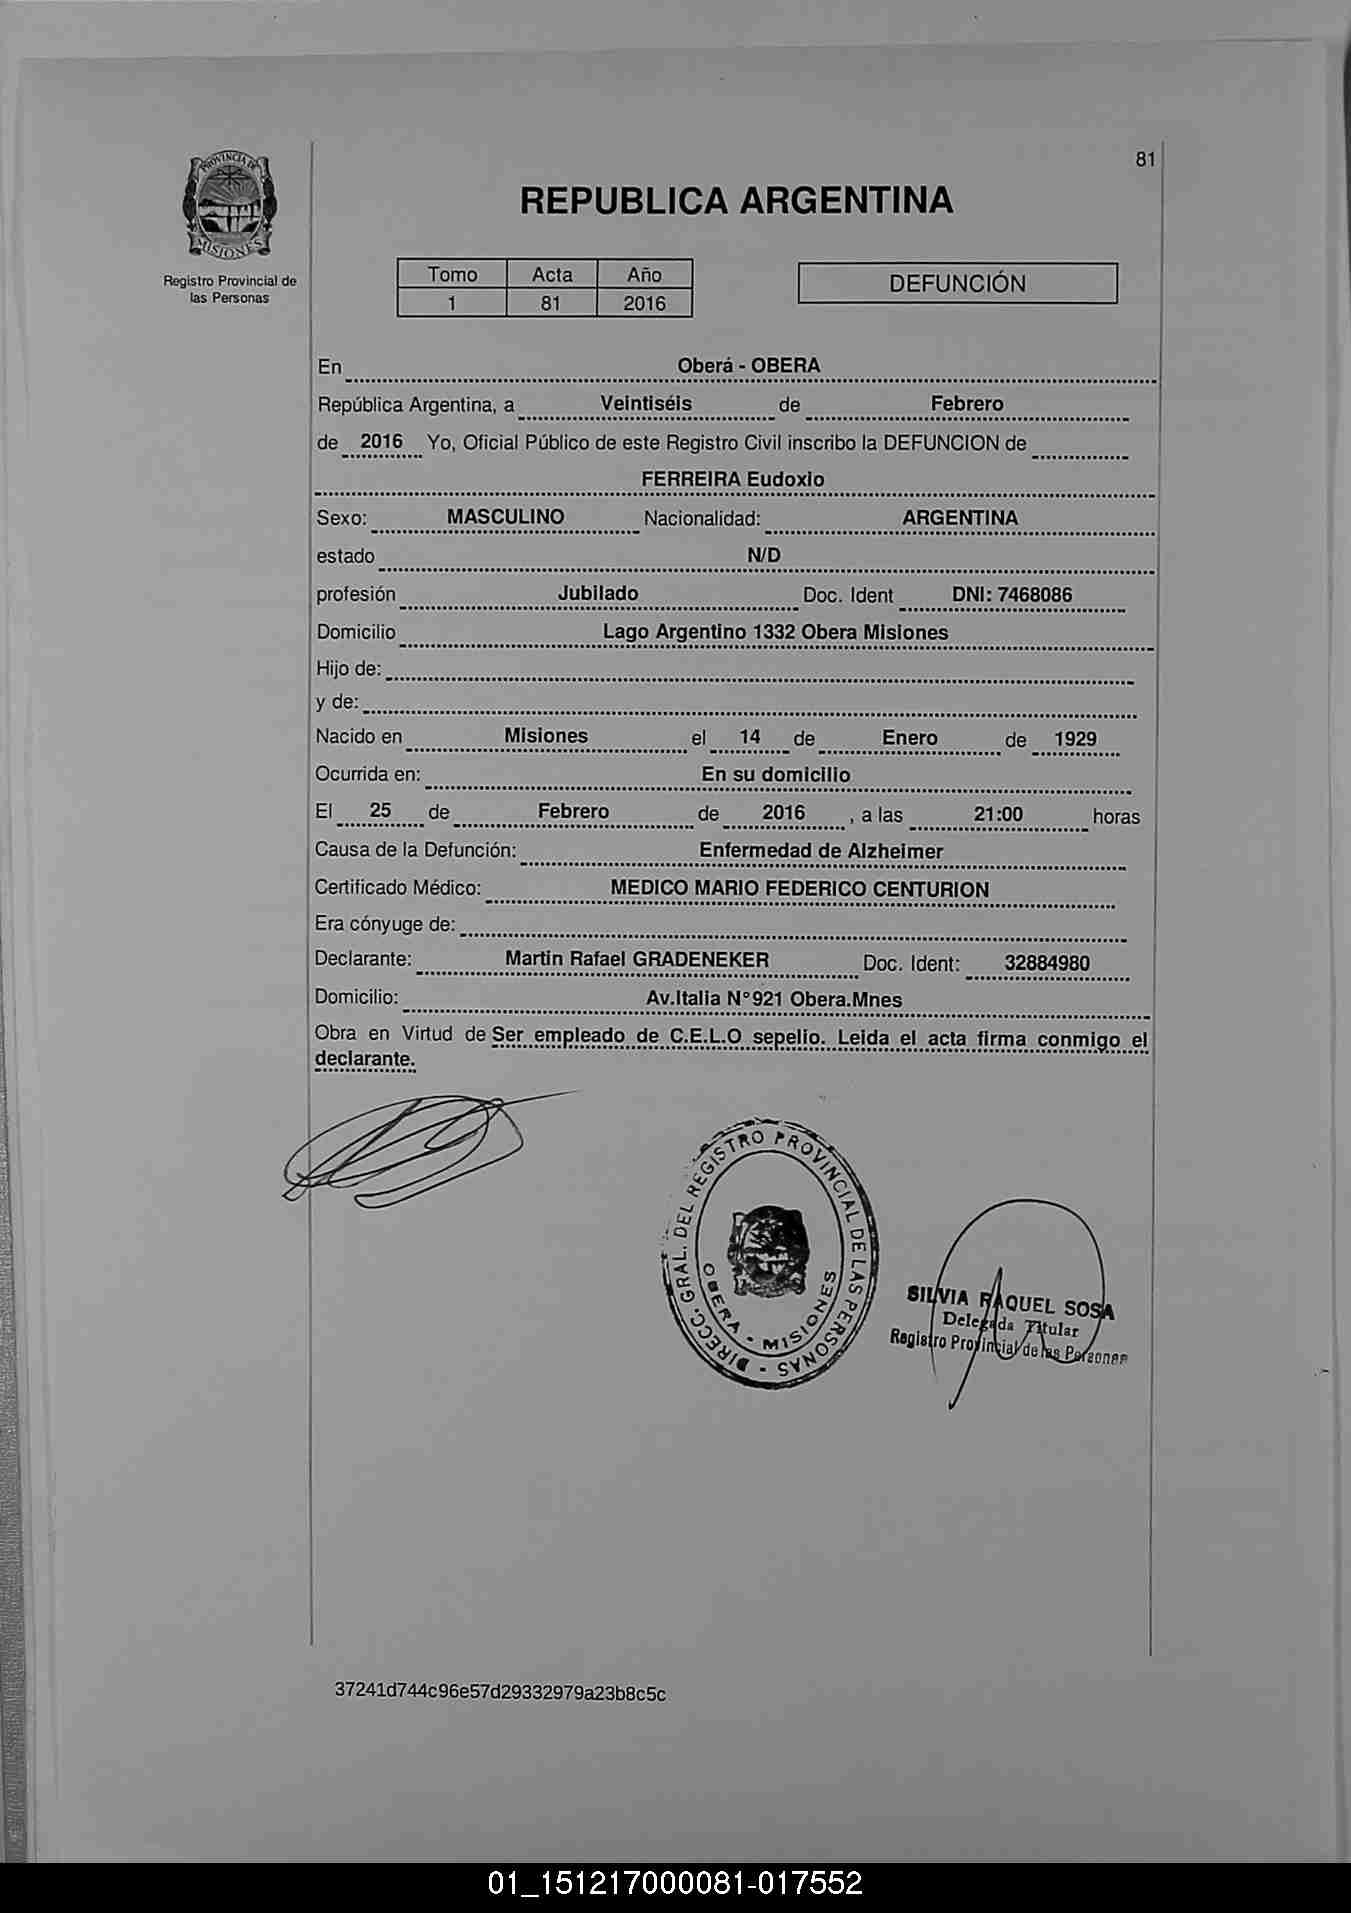 81
PROVINCIA DE
MISIONES
Registro Provincial de
las Personas
REPUBLICA ARGENTINA
Tomo Acta Año
1 81 2016
DEFUNCIÓN
En Oberá - OBERA
República Argentina, a Veintiséis de Febrero
de 2016 Yo, Oficial Público de este Registro Civil inscribo la DEFUNCION de
FERREIRA Eudoxio
Sexo: MASCULINO Nacionalidad: ARGENTINA
estado N/D
profesión Jubilado Doc. Ident DNI: 7468086
Domicilio Lago Argentino 1332 Obera Misiones
Hijo de:
y de:
Nacido en Misiones el 14 de Enero de 1929
Ocurrida en: En su domicilio
El 25 de Febrero de 2016 , a las 21:00 horas
Causa de la Defunción: Enfermedad de Alzheimer
Certificado Médico: MEDICO MARIO FEDERICO CENTURION
Era cónyuge de:
Declarante: Martin Rafael GRADENEKER Doc. Ident: 32884980
Domicilio: Av.Italia N°921 Obera.Mnes
Obra en Virtud de Ser empleado de C.E.L.O sepelio. Leida el acta firma conmigo el
declarante.
DIRECC. GRAL. DEL REGISTRO PROVINCIAL DE LAS PERSONAS -
OBERA - MISIONES
SILVIA RAQUEL SOSA
Delegada Titular
Registro Provincial de las Personas
37241d744c96e57d29332979a23b8c5c
01_151217000081-017552